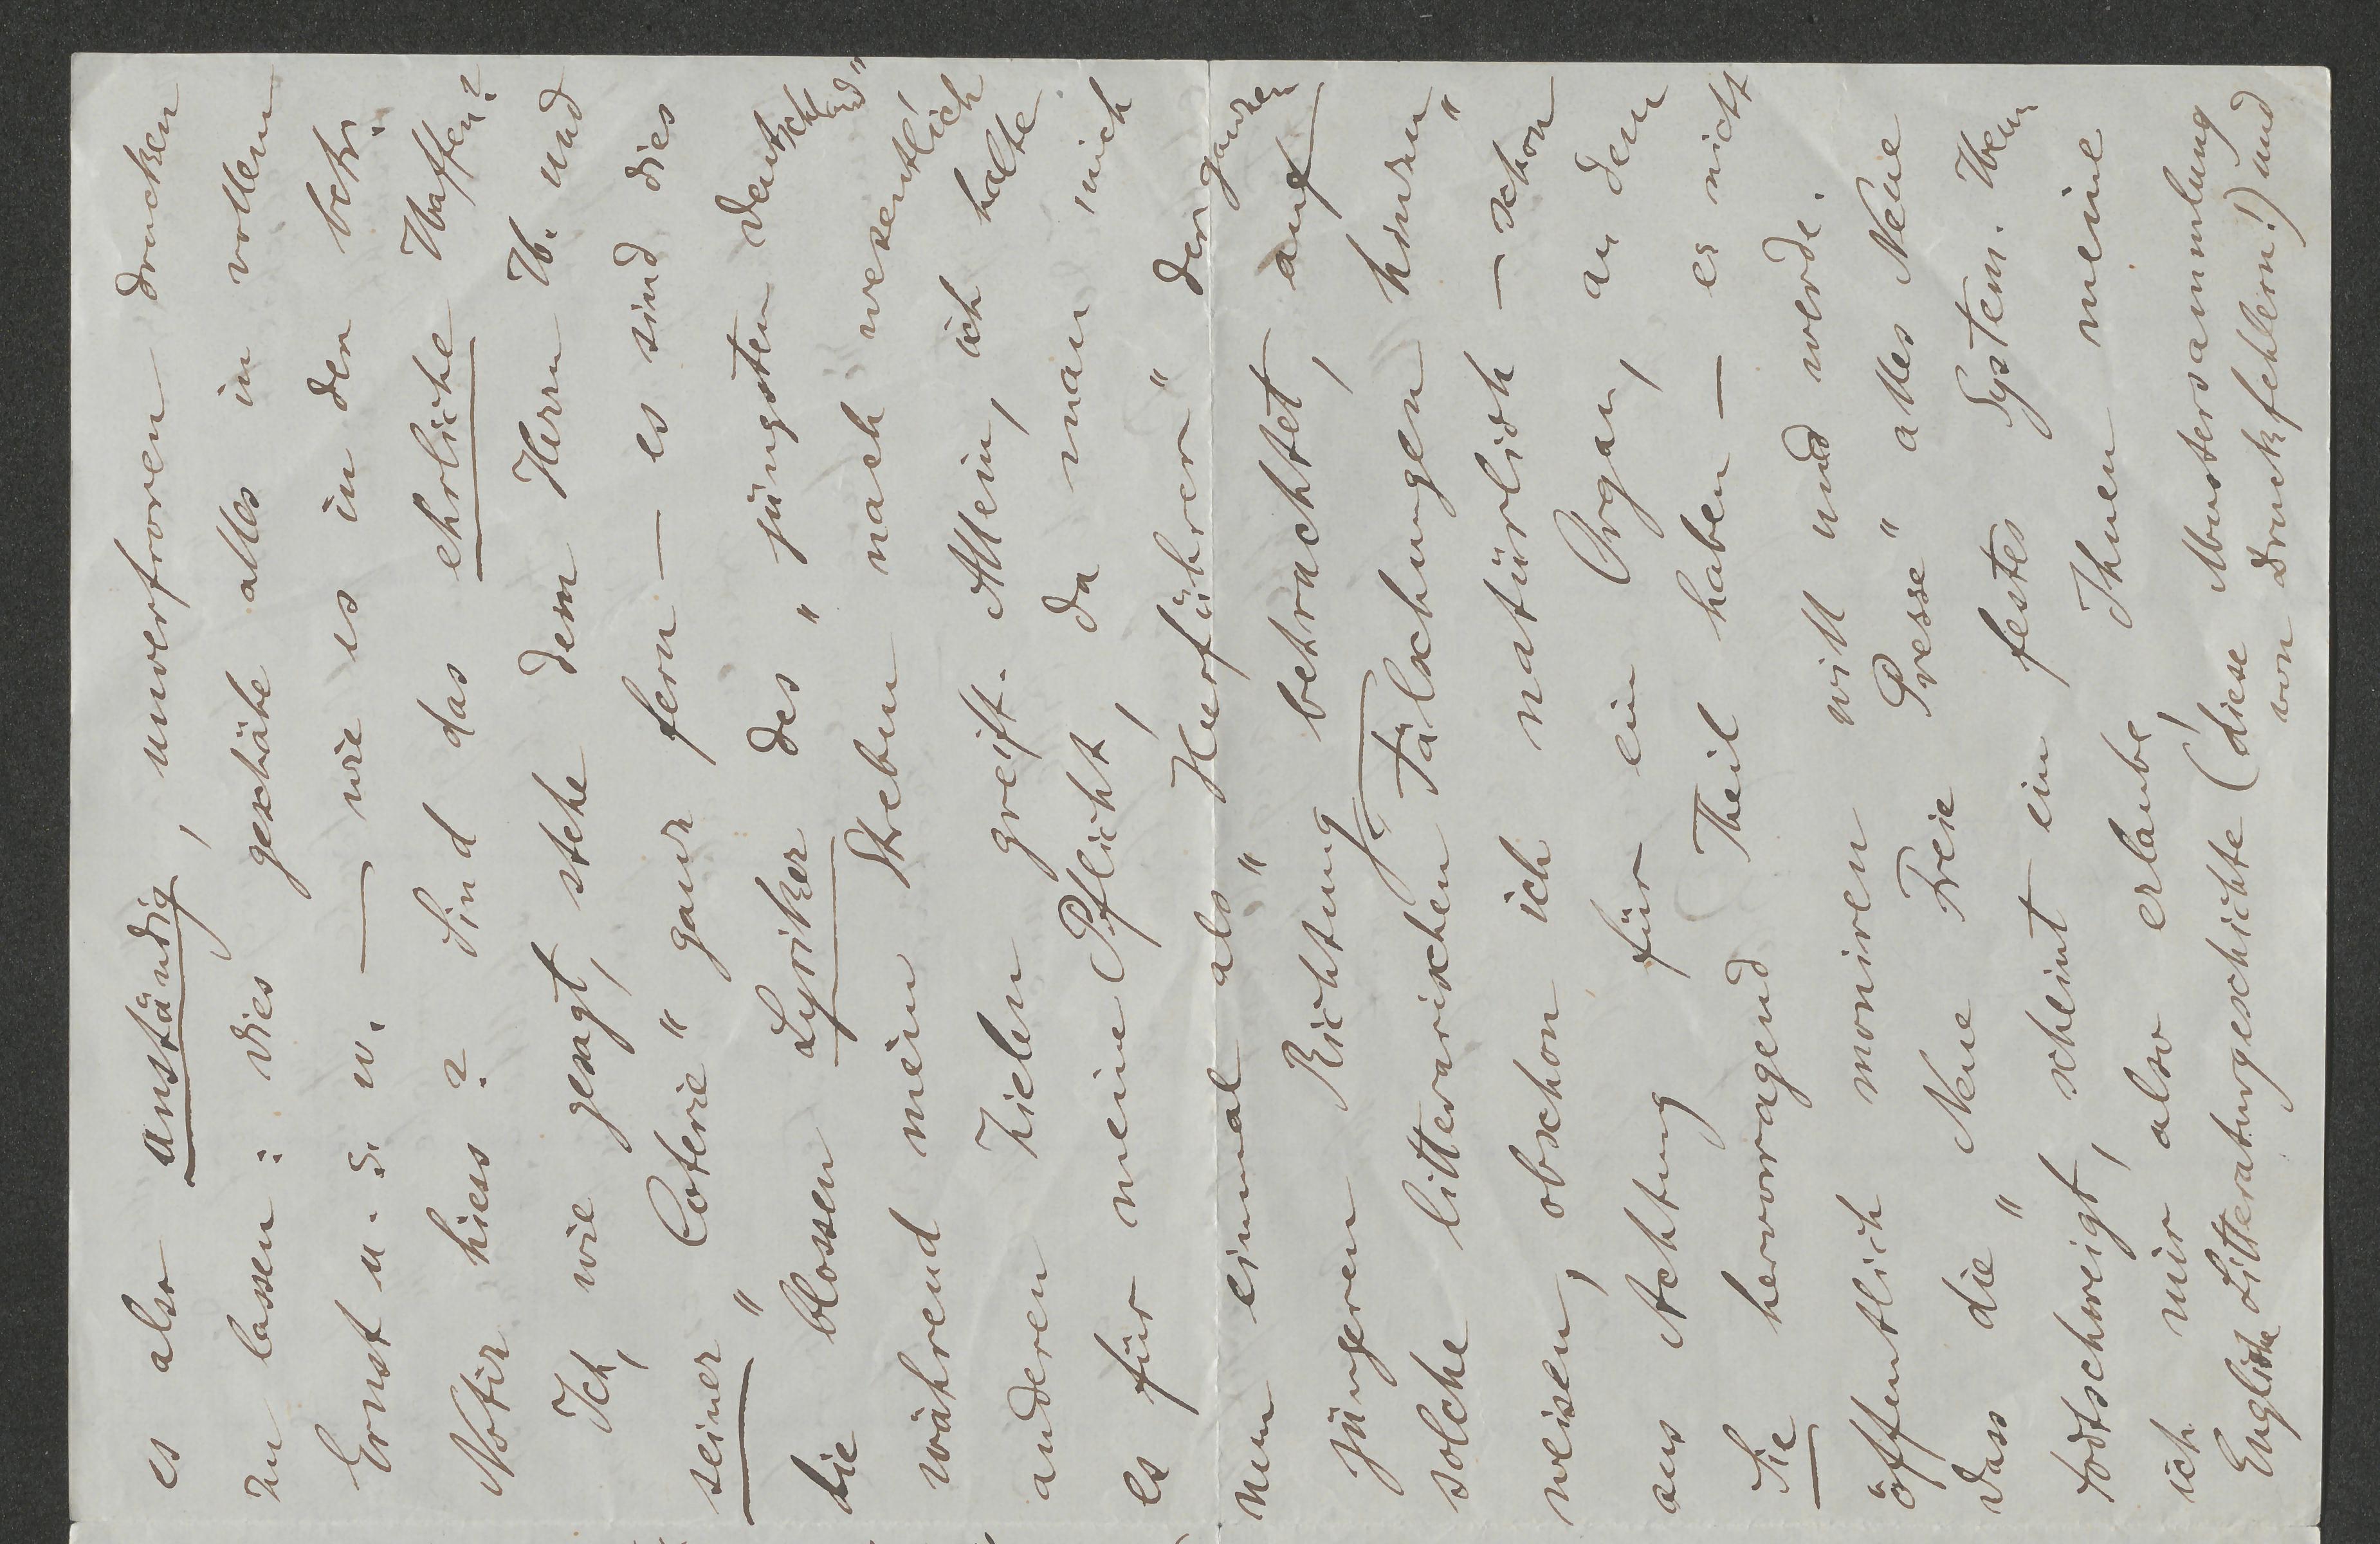 es also anständig, unverfroren drucken
zu lassen: dies geschähe alles in vollem
Ernst u. s. w. — wie es in der betr.
Notiz hiess? Sind das ehrliche Waffen?
Ich, wie gesagt, stehe dem Herrn W. und
seiner „Coterie" ganz fern — es sind dies
die blossen Lyriker des „jüngsten Deutschland",
während mein Streben nach wesentlich
anderen Zielen greift. Allein, ich halte
es für meine Pflicht, da man mich
nun einmal als „Heerführer" der ganzen
jüngeren Richtung betrachtet, auf
solche litterarischen Fälschungen hinzu-
weisen, obschon ich natürlich — schon
aus Achtung für ein Organ, an dem
Sie hervorragend Theil haben — es nicht
öffentlich moniren will und werde.
Dass die „Neue Freie Presse" alles Neue
todtschweigt, scheint ein festes System. Wenn
ich mir also erlaube, Ihnen meine
Englische Litteraturgeschichte (diese Mustersammlung
von Druckfehlern!) und